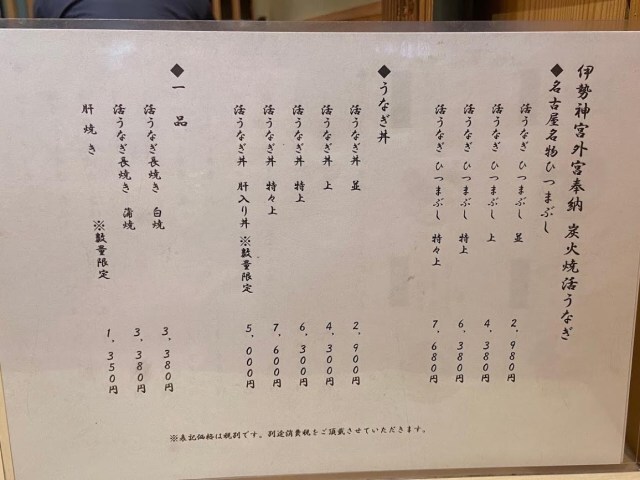 伊勢神宮外宮奉納 炭火焼活うなぎ
◆名古屋名物ひつまぶし
活うなぎ ひつまぶし 並 2,980円
活うなぎ ひつまぶし 上 4,380円
活うなぎ ひつまぶし 特上 6,380円
活うなぎ ひつまぶし 特々上 7,680円
◆うなぎ丼
活うなぎ丼 並 2,900円
活うなぎ丼 上 4,300円
活うなぎ丼 特上 6,300円
活うなぎ丼 特々上 7,600円
活うなぎ丼 肝入り丼 ※数量限定 5,000円
◆一品
活うなぎ長焼き 白焼 3,380円
活うなぎ長焼き 蒲焼 3,380円
肝焼き ※数量限定 1,350円
※表記価格は税別です。別途消費税をご頂戴させていただきます。